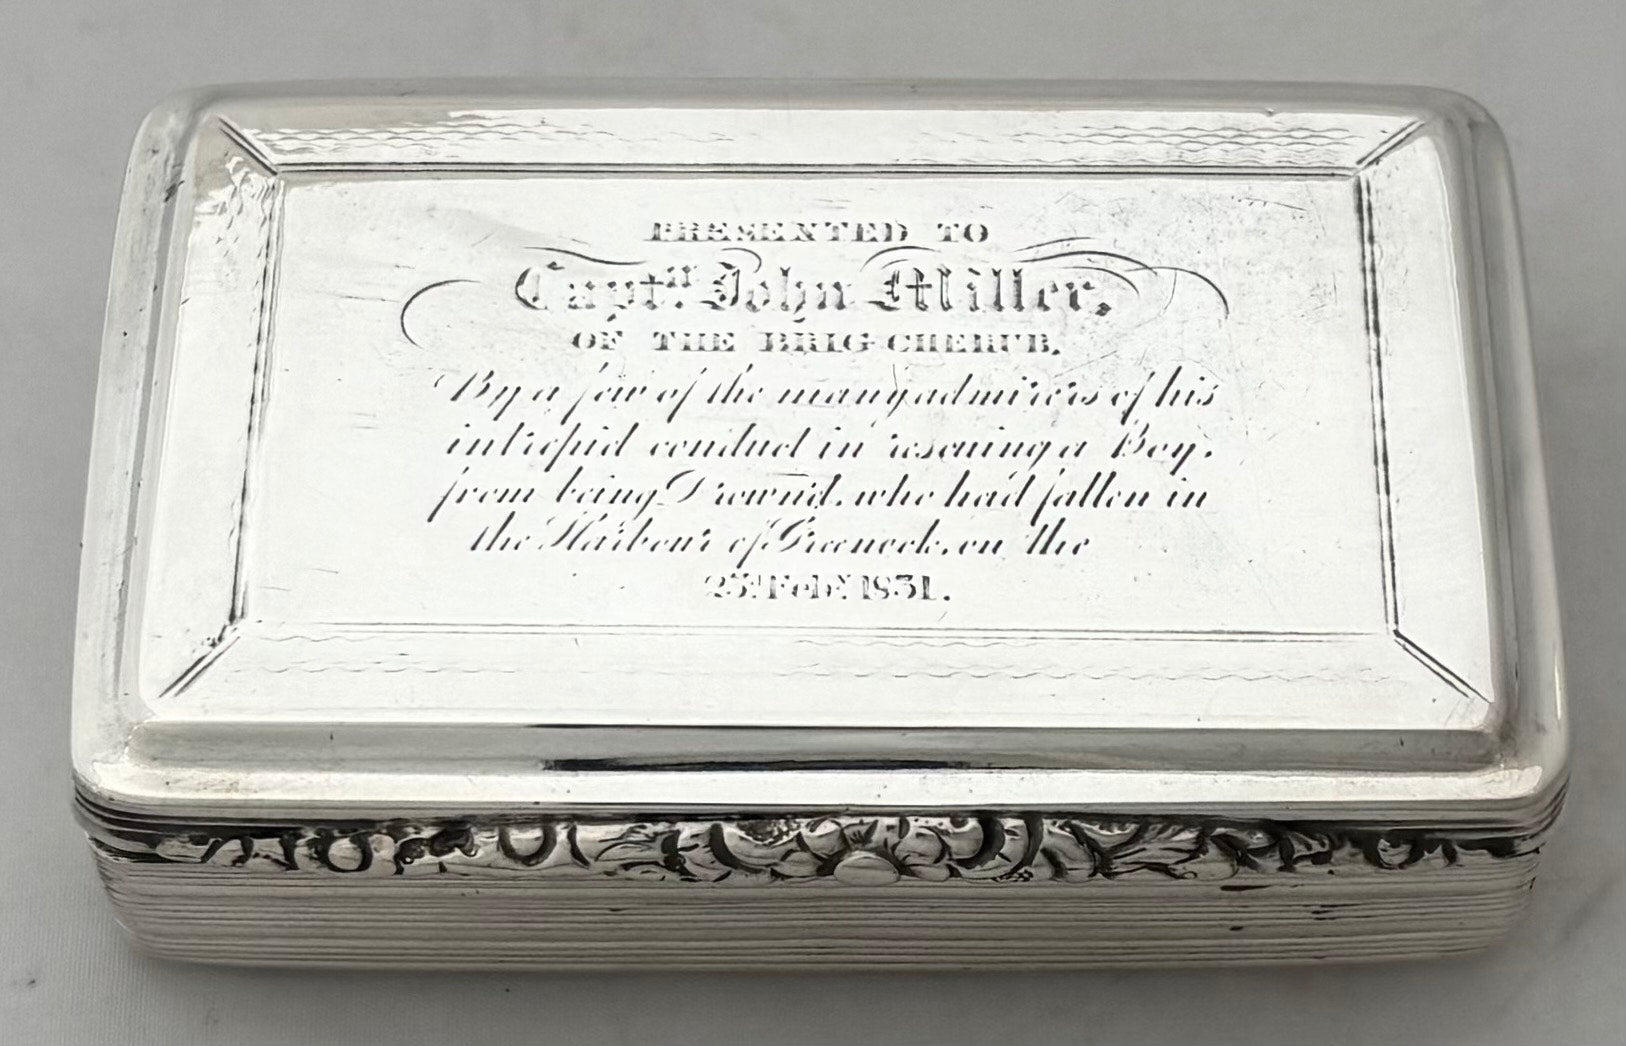 PRESENTED TO
Captn. John Miller,
OF THE BRIG CHERUB,
By a few of the many admirers of his
intrepid conduct in rescuing a Boy,
from being Drown'd, who had fallen in
the Harbour of Greenock, on the
23d. Feby. 1831.